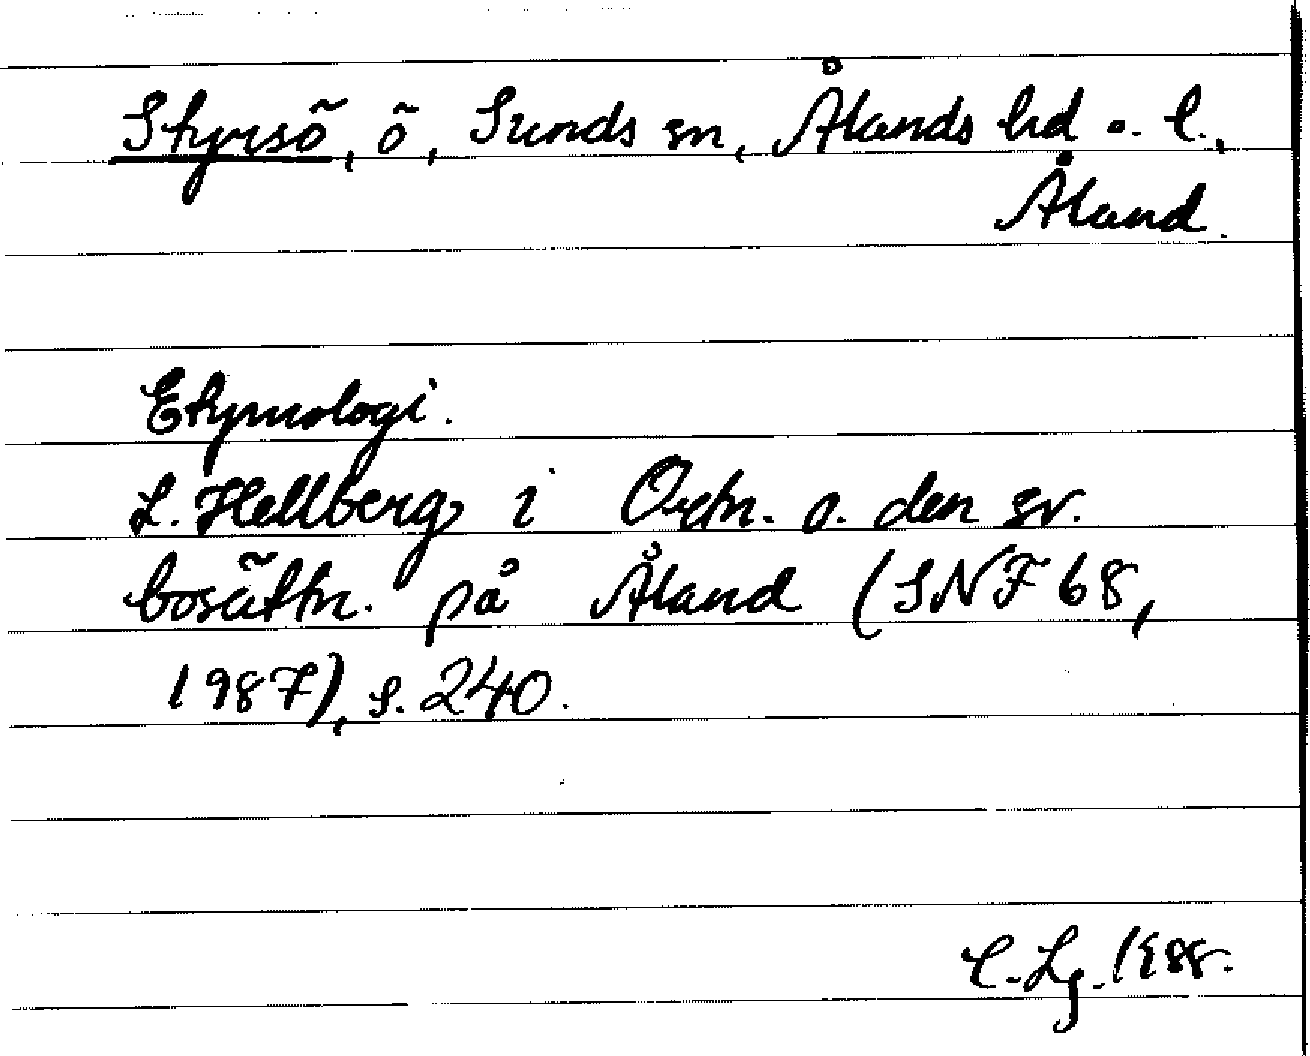 Styrsö, ö, Sunds sn, Ålands hd o. l.,
Åland.
Etymologi.
L. Hellberg i Ortn. o. den sv.
bosättn. på Åland (SNF 68,
1987), s. 240.
C. Lg. 1988.